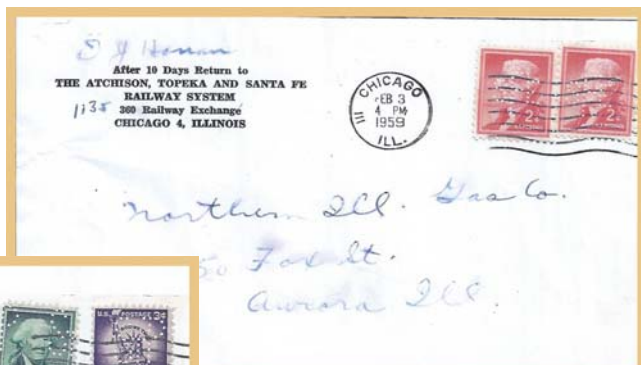 After 10 Days Return to
THE ATCHISON, TOPEKA AND SANTA FE
RAILWAY SYSTEM
1135 360 Railway Exchange
CHICAGO 4, ILLINOIS
CHICAGO
FEB 3
4 PM
1959
ILL.
2¢ 2¢
Northern Ill. Gas Co.
50 Fox St.
Aurora Ill.
U.S. POSTAGE 3¢